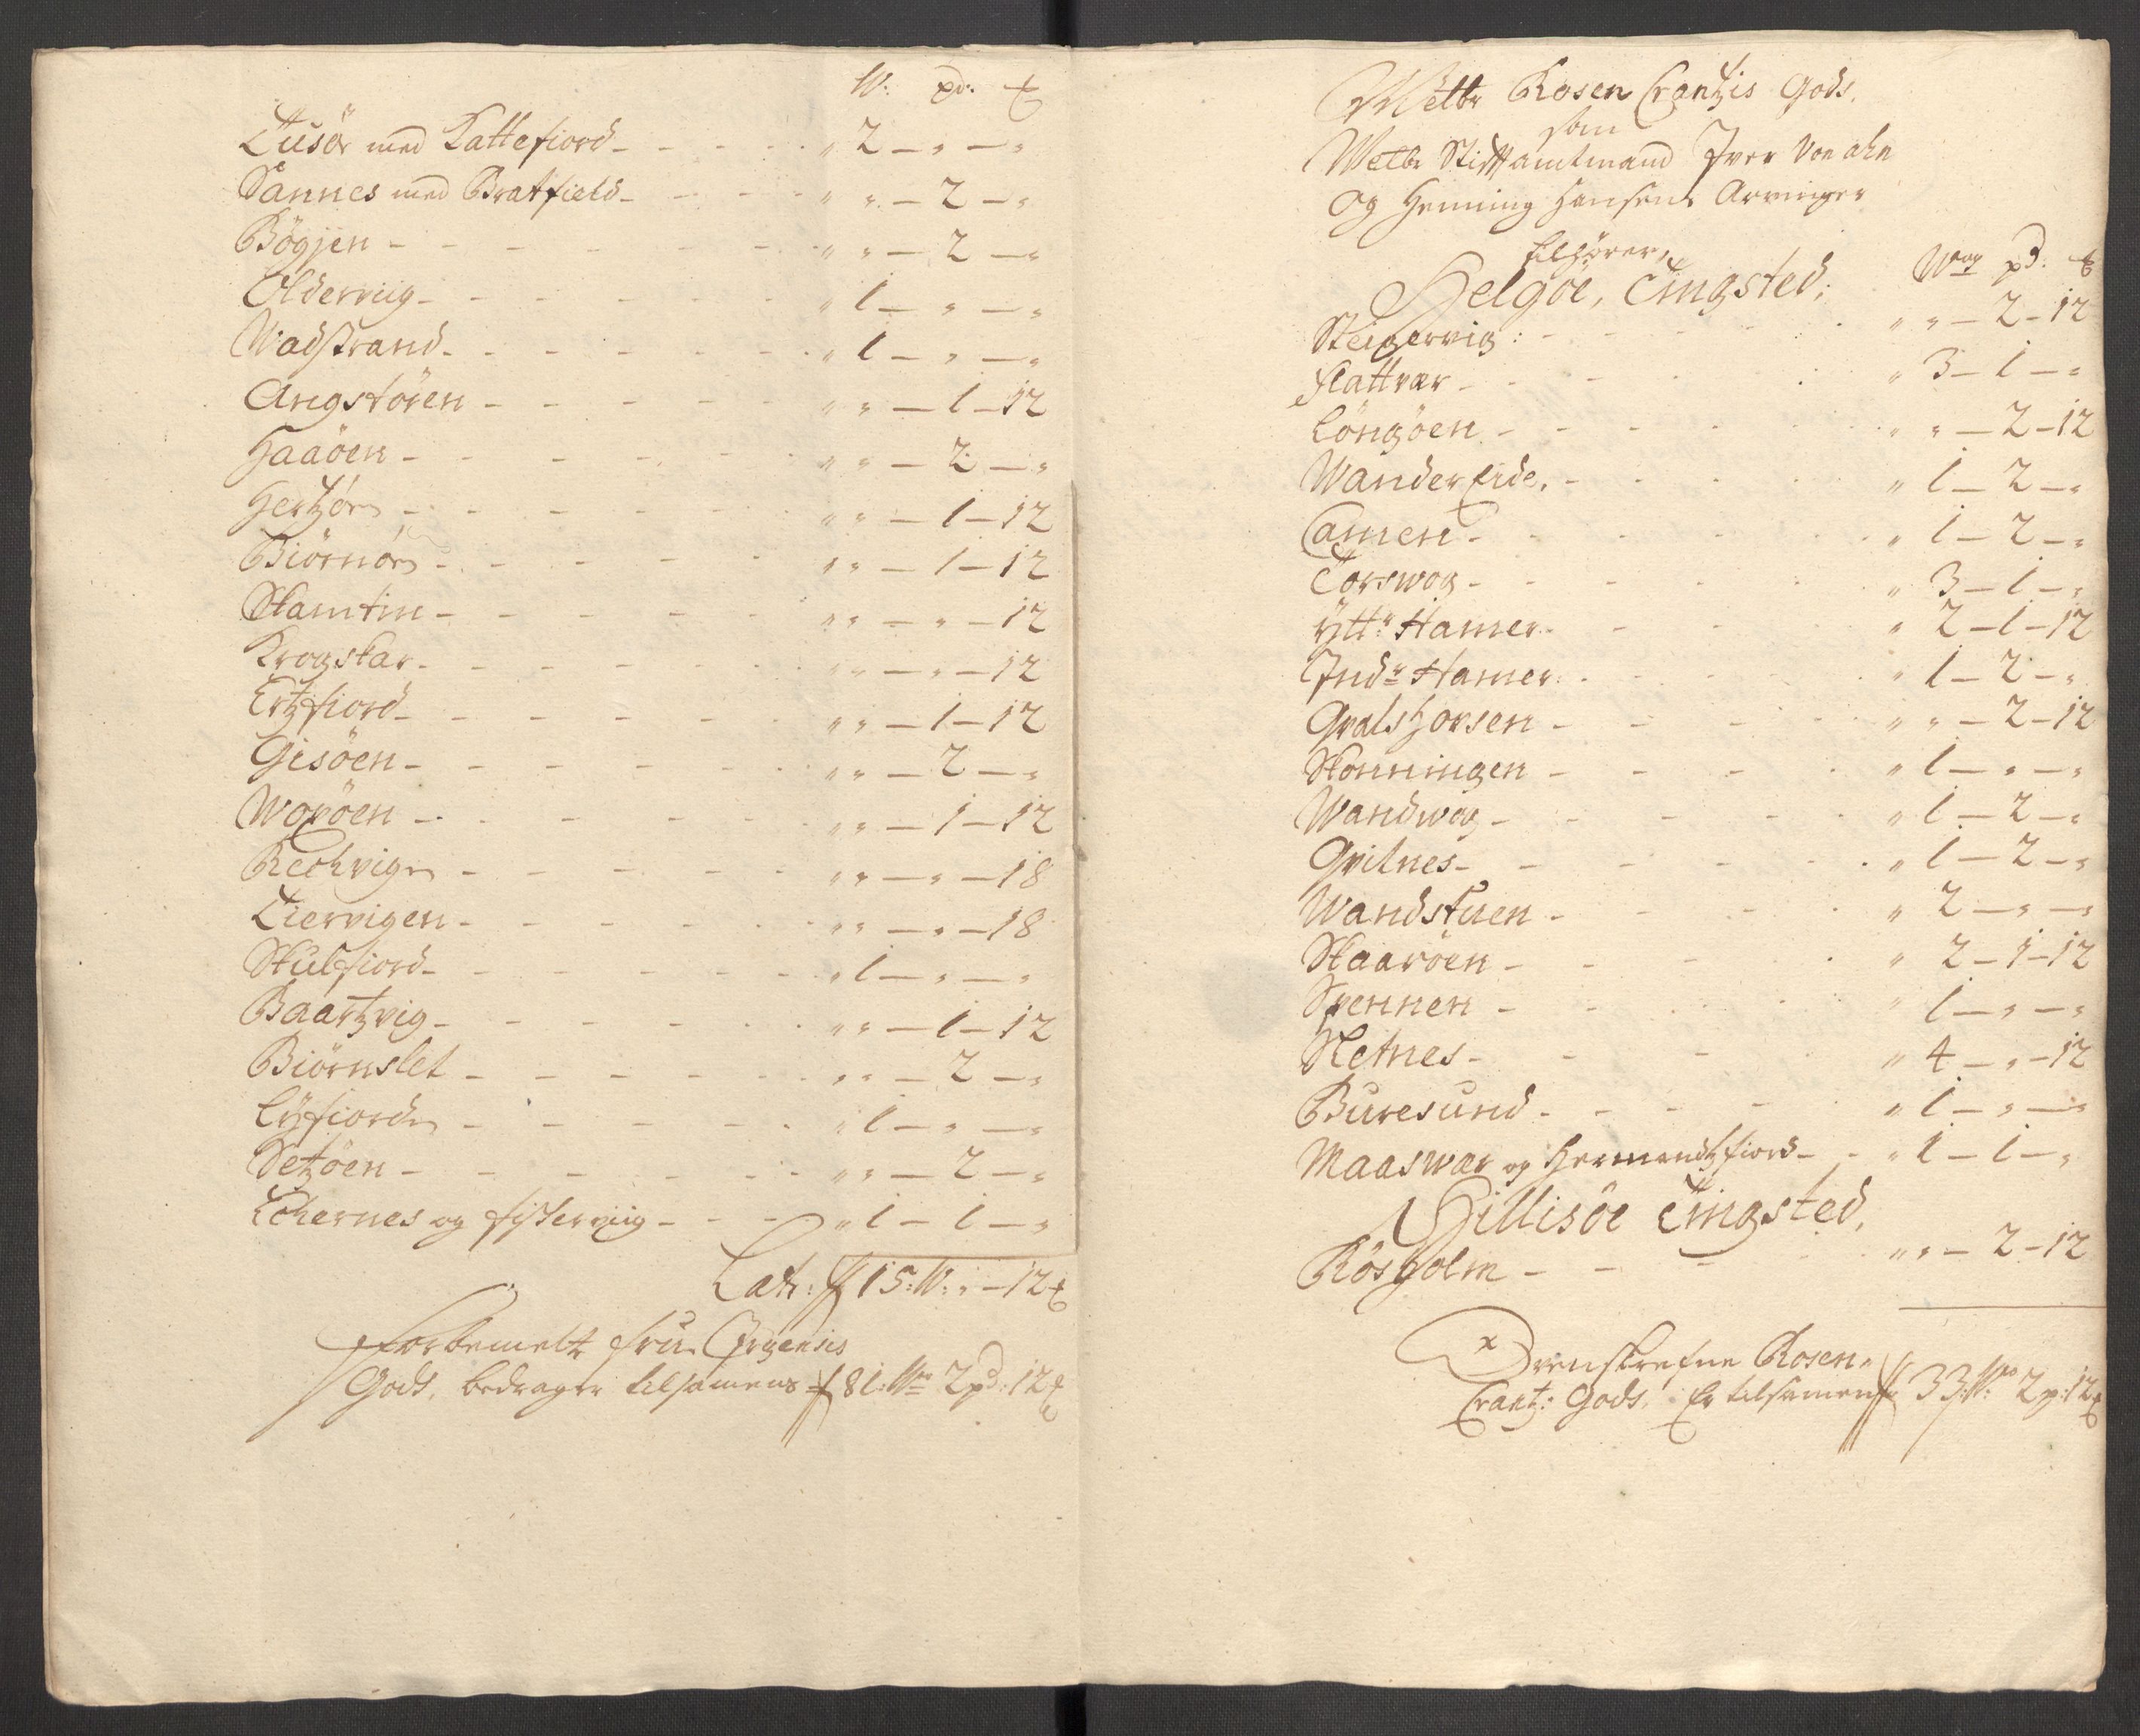 W: pd: ℔
Tusör med Kattefiord - - - „ 2 - „ - „
Sannes med Bratfield - - - „ „ - 2 - „
Bögjen - - - „ „ - 2 - „
Olderviig - - - „ 1 - „ - „
Wadstrand - - - „ 1 - „ - „
Angstören - - - „ „ - 1 - 12
Haaöen - - - „ „ - 2 - „
Hertzörn - - - „ „ - 1 - 12
Biörnörn - - - „ „ - 1 - 12
Skamtin - - - „ „ - „ - 12
Krogskar - - - „ „ - „ - 12
Ertzfiord - - - „ „ - 1 - 12
Gisöen - - - „ „ - 2 - „
Woxöen - - - „ „ - 1 - 12
Rechvigen - - - „ „ - „ - 18
Tiervigen - - - „ „ - „ - 18
Skulfiord - - - „ 1 - „ - „
Baartzvig - - - „ „ - 1 - 12
Biörnslet - - - „ „ - 2 - „
Lyfiorden - - - „ 1 - „ - „
Setzöen - - - „ „ - 2 - „
Lchernes og fisterviig - - - „ 1 - 1 - „
Lats: 15: W: „ - 12 ℔
Forbemelte Frue Jrgensis
Gods, bedrager tilsamens 81: W 2 pd: 12 ℔
Welbr Rosen Crantzis Gods,
som
Welbr Stiftamtmand Iver Von ahn
og Henning Hansens Arvinger
tilhører,
Helgöe, Tingsted: Wog pd: ℔
Steigervig: - - - „ „ - 2 - 12
flattvær - - - „ 3 - 1 - „
Löngöen - - - „ „ - 2 - 12
Wander Eide, - - - „ 1 - 2 - „
Camen - - - „ 1 - 2 - „
Torswog - - - „ 3 - 1 - „
Ytt: Hamer - - - „ 2 - 1 - 12
Indr Hamer - - - „ 1 - 2 - „
Gvalshorsen - - - „ „ - 2 - 12
Skonningen - - - „ 1 - „ - „
Wandwog - - - „ 1 - 2 - „
Gvitnes - - - „ 1 - 2 - „
Wandstuen - - - „ 2 - „ - „
Skaaröen - - - „ 2 - 1 - 12
Spennen - - - „ 1 - „ - „
Sletnes - - - „ 4 - „ - 12
Buresund - - - „ 1 - „ - „
Maaswær og Hermandtzfiord - - „ 1 - 1 - „
Hillisöe Tingsted,
Rösholm - - - „ „ - 2 - 12
Ovenskrefne Rosen-
Crantz: Gods, Er tilsamens 33: W: 2 p: 12 ℔